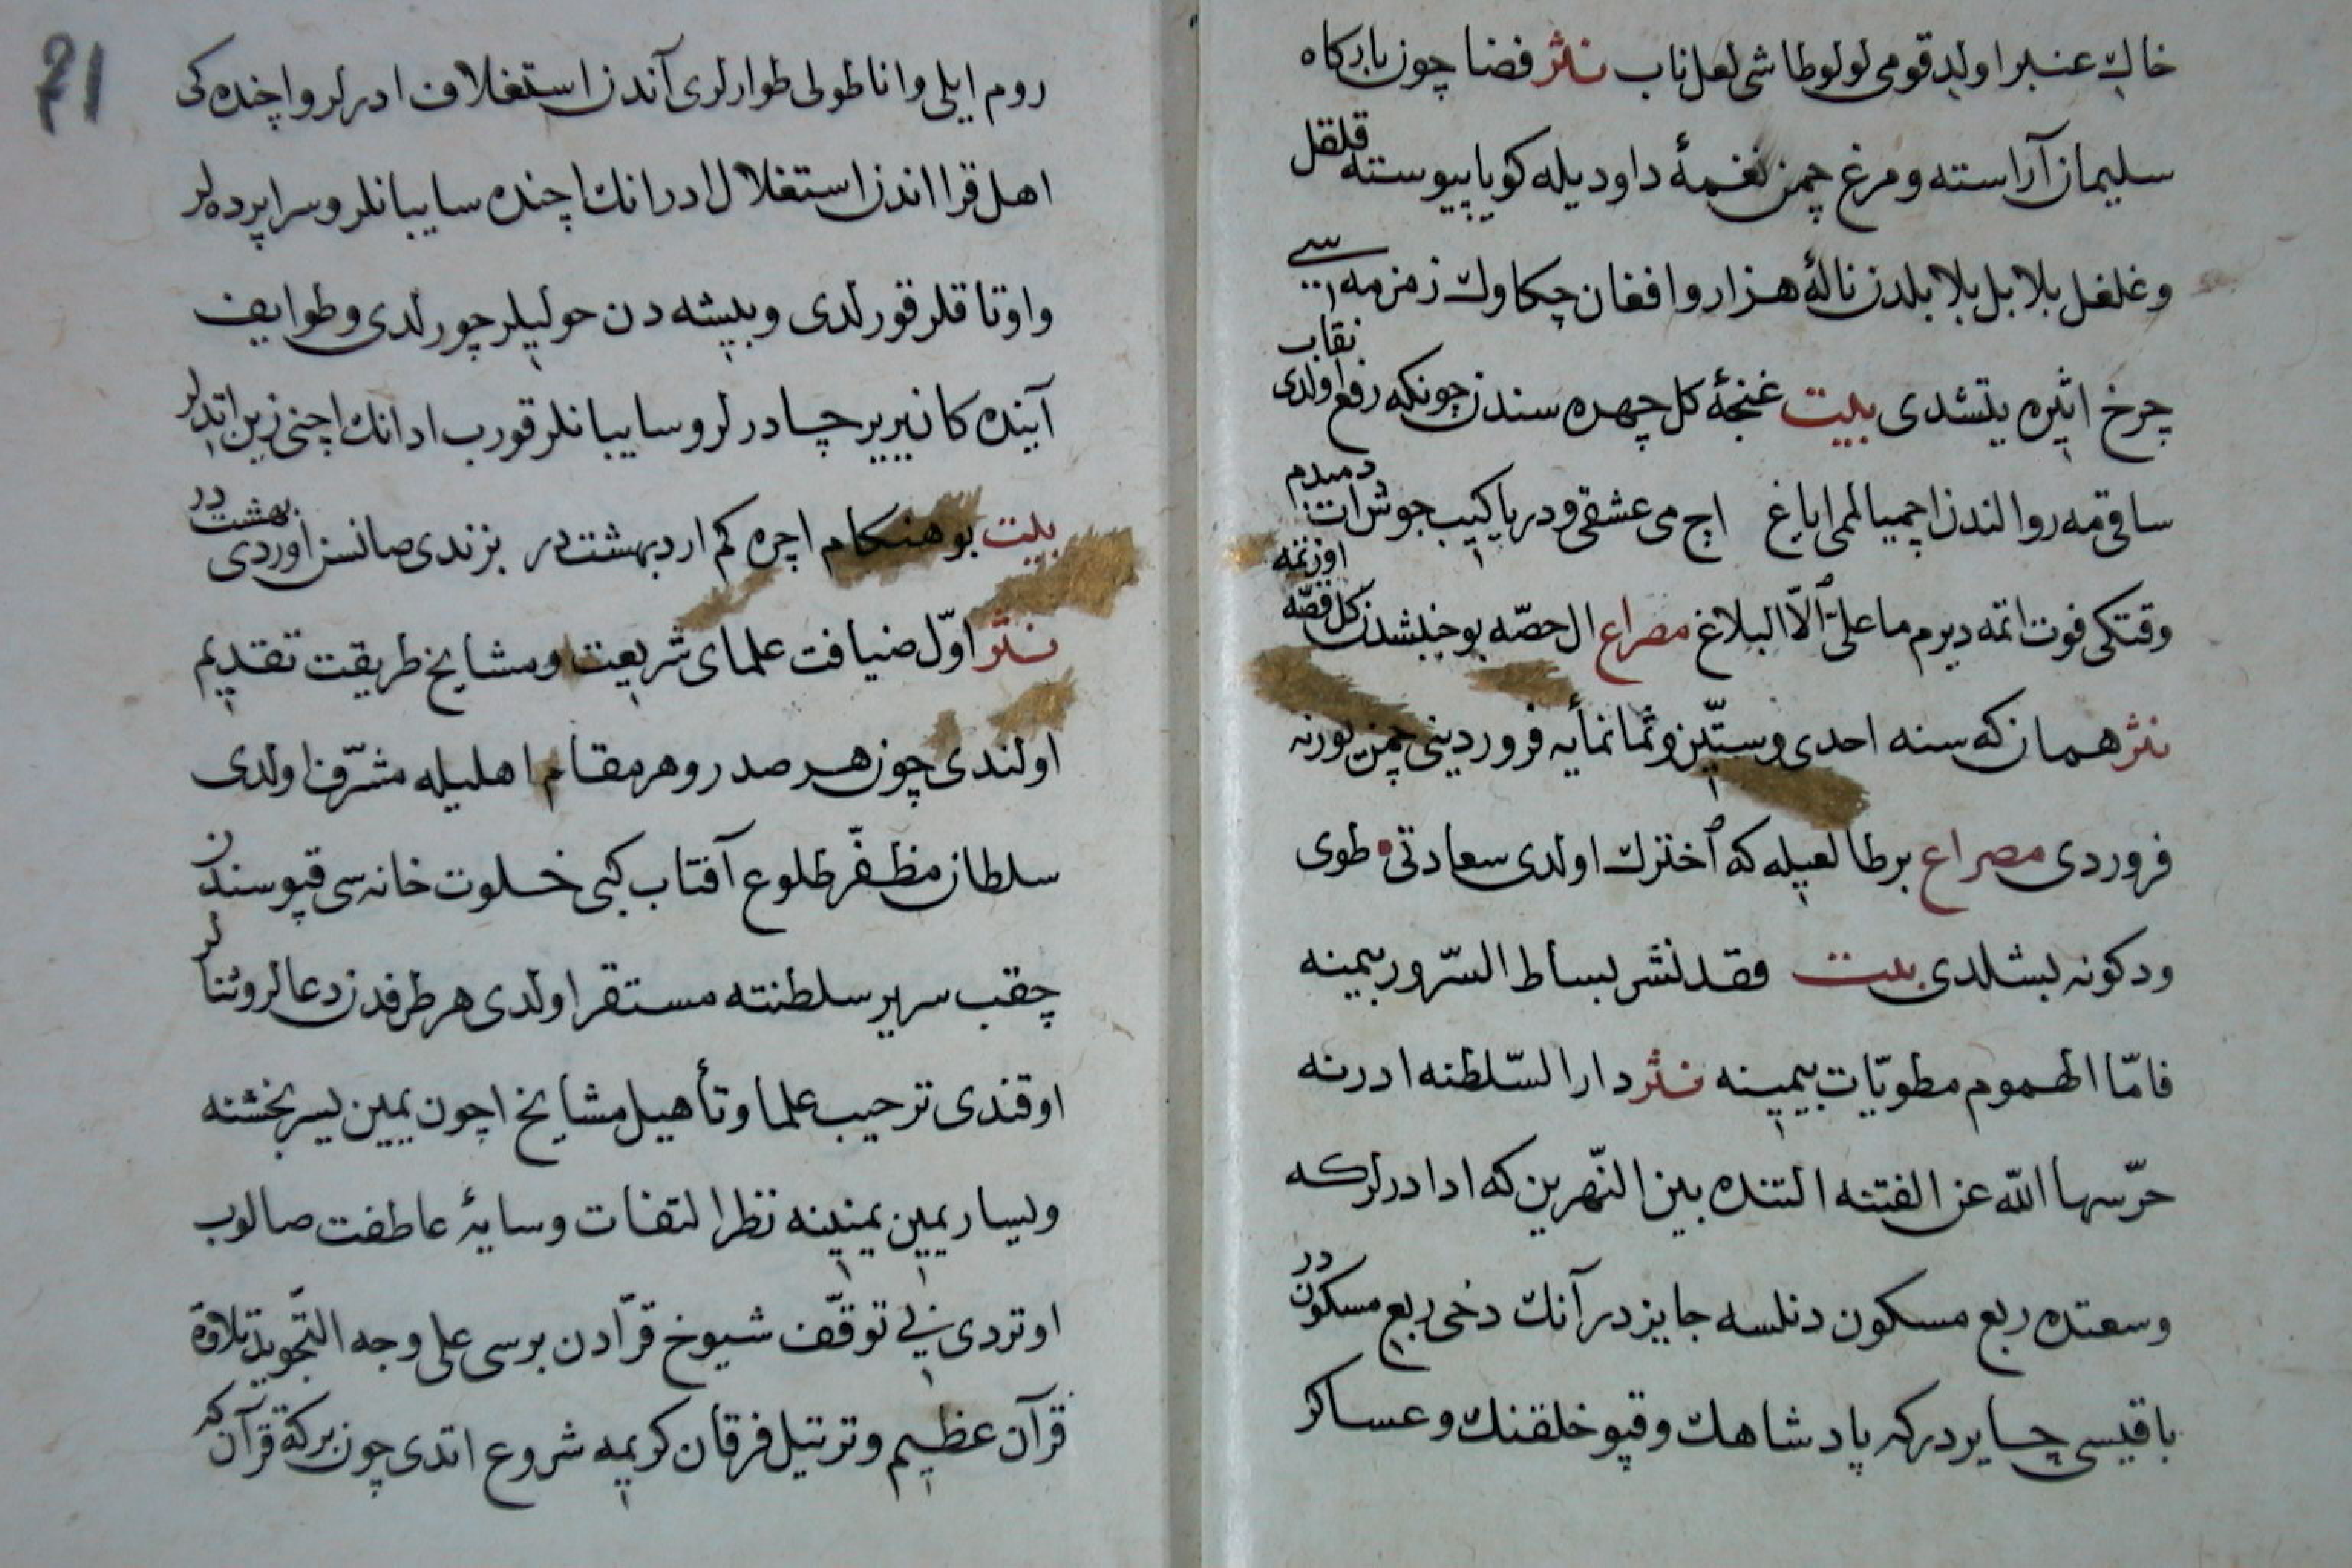 خاك عنبر اولد قومی لولو طاشی لعل ناب نثر فضا چون بارگاه
سلیمان آراسته و مرغ چمن نغمهٔ داودیله کویا پیوسته قلقل
وغلغل بلابل بلابلدن نالهٔ هزار وافغان چکاوك زمزمه سی
چرخ اثیره یتشدی بیت غنجهٔ کل چهره سندن چونکه رفع اولدی نقاب
ساقی مه رو الندن اچمیالمی ایاغ اچ می عشقی ودریا کیبب جوش ات دمبدم
وقتکی فوت اتمه دیرم ما علی الا البلاغ مصراع ال حصه بو خبشدن کل قصه اوزتمه
نثر همان که سنه احدی وستین وثمانمأیه فروردینی چمن یوزنه
فروردی مصراع بر طالعیله که اختزك اولدی سعادتی طوی
ودکونه بشلدی بیت فقد نشر بساط السرور بیمینه
فامّا الهموم مطویّات بیمینه نثر دار السّلطنه ادرنه
حرّسها اللّه عن الفتنه التنده بین النّهرین که ادا درلرکه
وسعتده ربع مسکون دنلسه جایزدر آنك دخی ربع مسکون در
باقیسی چایردرکه پادشاهك وقپو خلقنك وعساکر
71
روم ایلی واناطولی طوارلری آندن استغلاف ادرلر واخنده کی
اهل قرا اندن استغلال ادر انك اچنده سایبانلر وسراپرده لر
واوتاقلر قورلدی وبیشه دن حولیلر چورلدی وطوایف
آینده کانیریر چادرلر وسایبانلر قورب ادانك اچنی زین اتدلر
بیت بو هنکام اچره کم اردبهشت در بزندی صانسن اوردی بهشت در
نثر اوّل ضیافت علمای شریعت ومشایخ طریقت تقدیم
اولندی چون هر صدر وهر مقام اهلیله مشرّف اولدی
سلطان مظفّر طلوع آفتاب کبی خلوت خانه سی قپوسندن
چقب سریر سلطنته مستقر اولدی هر طرفدن دعالر وثنالر
اوقندی ترحیب علما وتأهیل مشایخ اچون یمین یسر بخشنه
ویسار یمین یمنینه نظر التفات وسایهٔ عاطفت صالوب
اوتردی فی توقّف شیوخ قرّادن برسی علی وجه التّجوید تلاوة
قرآن عظیم وترتیل فرقان کریمه شروع اتدی چون برکة قرآن که